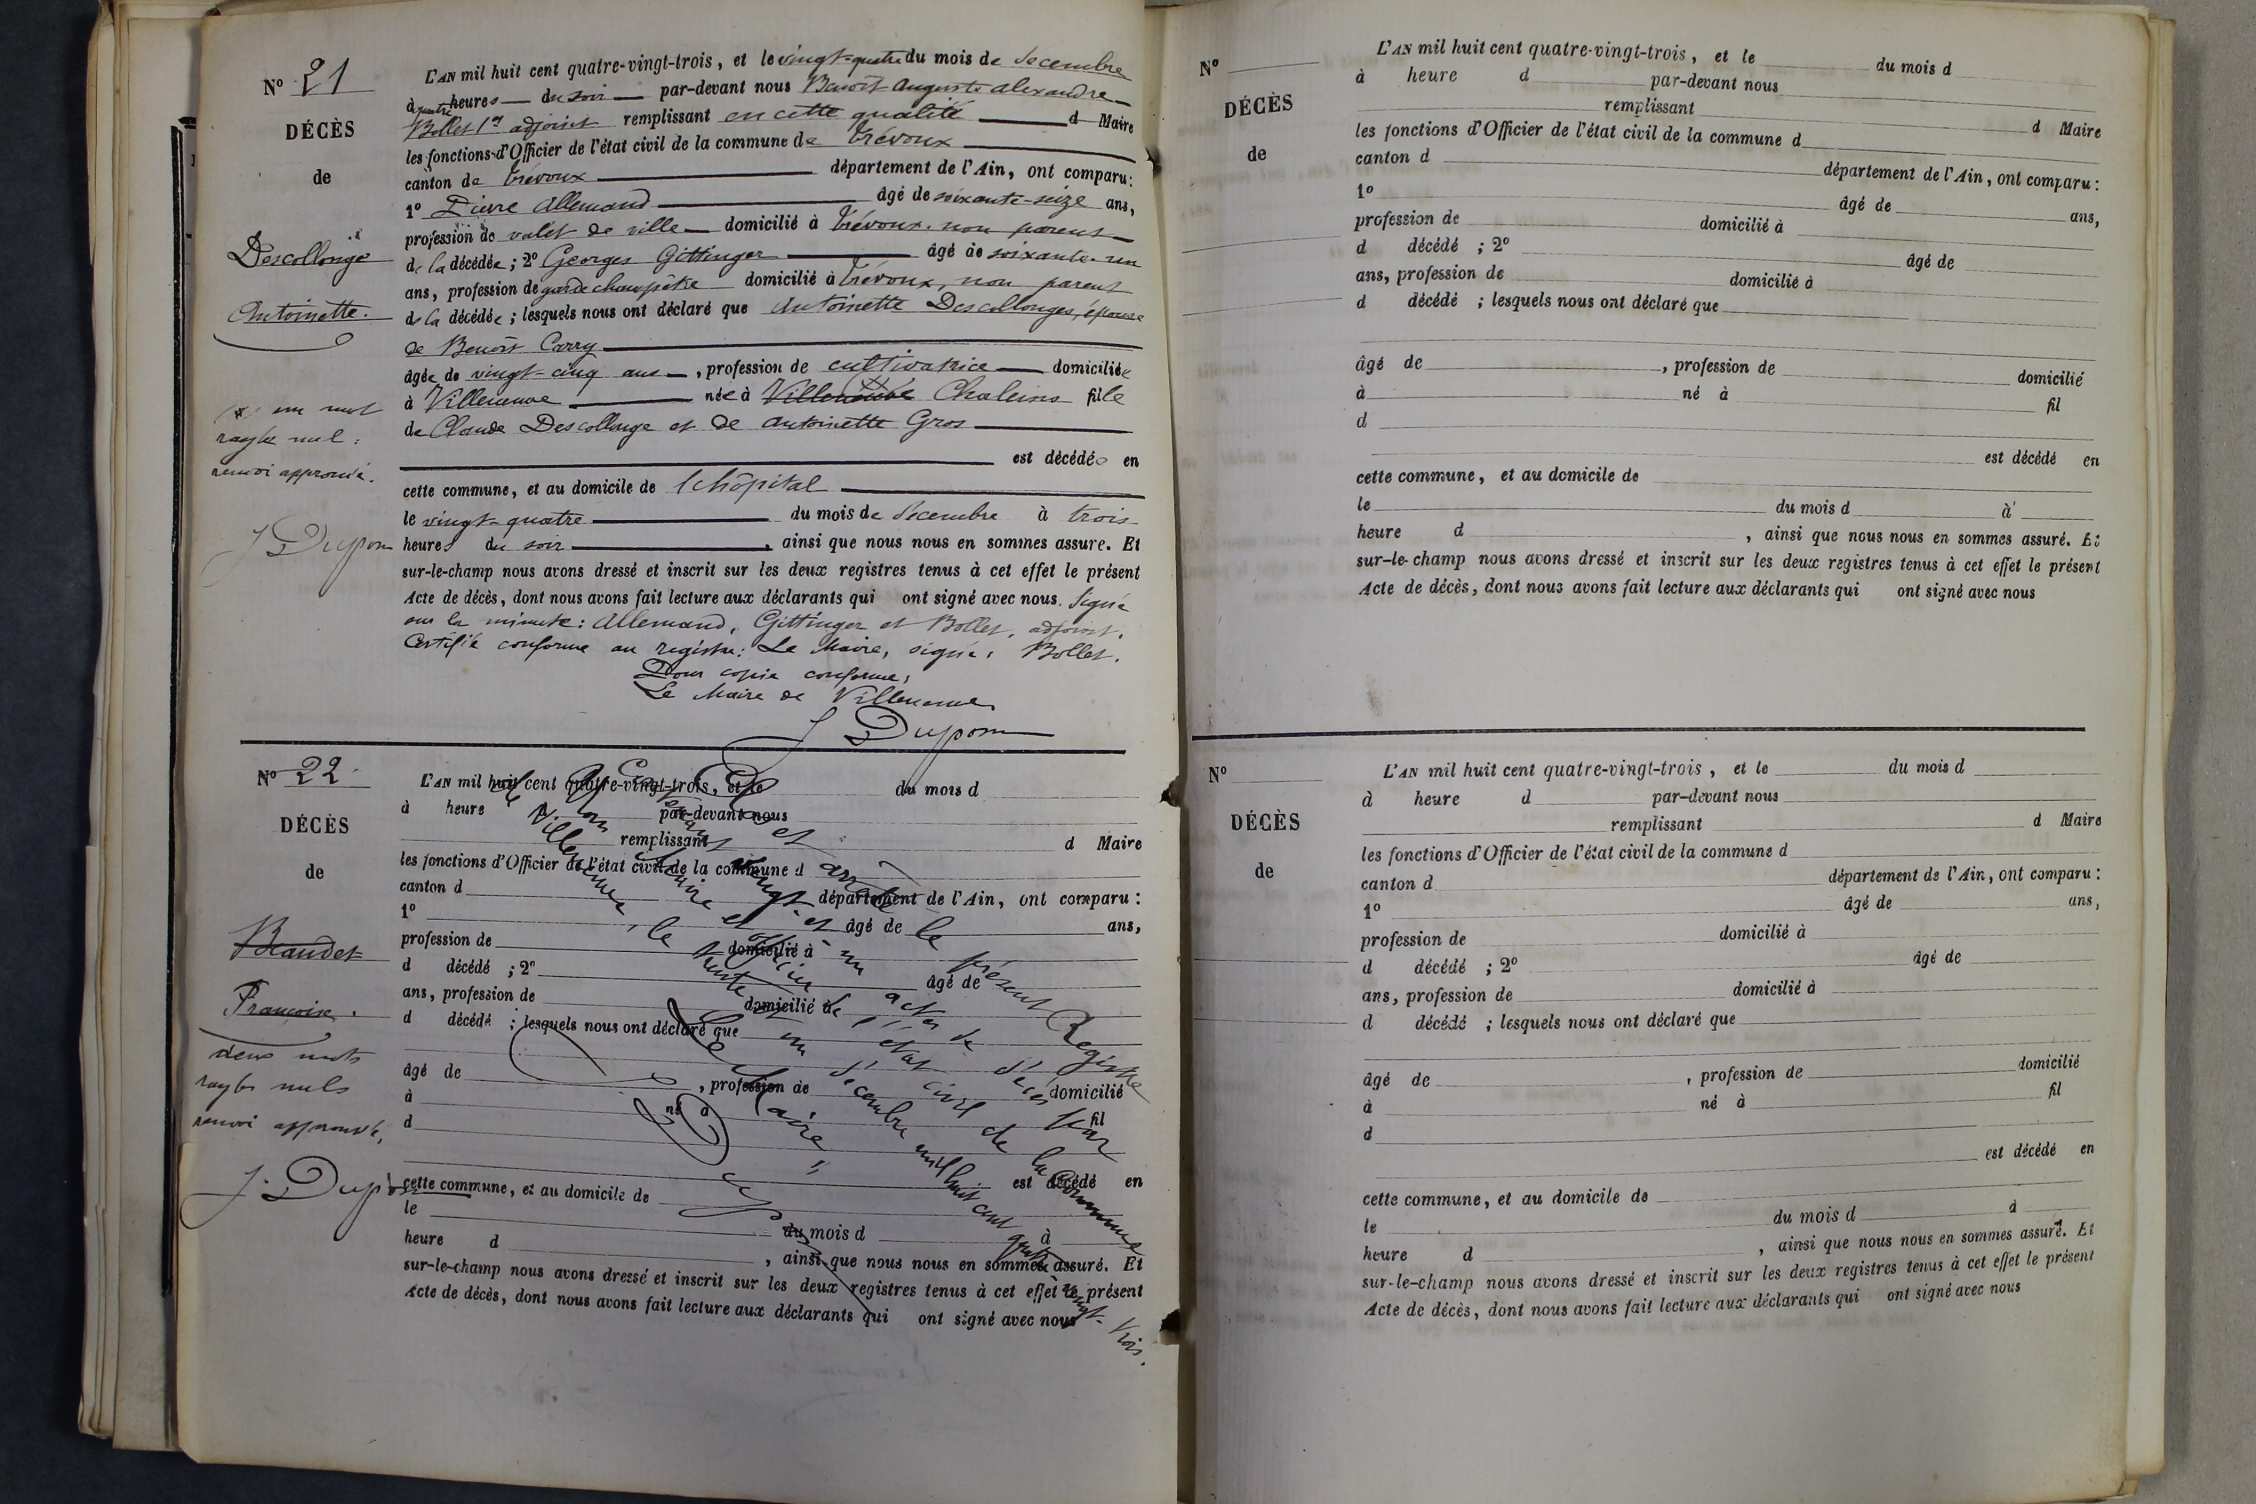 N° 21
DÉCÈS
de
Descollonge
Antoinette.
un mot
rayé nul :
renvoi approuvé.
J Dupont
L'AN mil huit cent quatre-vingt-trois, et le vingt-quatre du mois de décembre
à quatre heures du soir par-devant nous Benoît Auguste Alexandre
Bollet 1er adjoint remplissant en cette qualité d Maire
les fonctions d'Officier de l'état civil de la commune de Trévoux
canton de Trévoux département de l'Ain, ont comparu :
1° Pierre Allemand âgé de soixante-seize ans,
profession de valet de ville domicilié à Trévoux, non parent
de la décédée ; 2° Georges Gittinger âgé de soixante-un
ans, profession de garde champêtre domicilié à Trévoux, non parent
de la décédée ; lesquels nous ont déclaré que Antoinette Descollonges, épouse
de Benoît Carry
âgée de vingt-cinq ans, profession de cultivatrice domiciliée
à Villeneuve née à Villeneuve Chaleins fille
de Claude Descollonge et de Antoinette Gros
est décédée en
cette commune, et au domicile de l'hôpital
le vingt-quatre du mois de décembre à trois
heures du soir, ainsi que nous nous en sommes assuré. Et
sur-le-champ nous avons dressé et inscrit sur les deux registres tenus à cet effet le présent
Acte de décès, dont nous avons fait lecture aux déclarants qui ont signé avec nous. Signé
sur la minute : Allemand, Gittinger et Bollet, adjoint.
Certifié conforme au registre : Le Maire, signé : Bollet.
Pour copie conforme,
Le Maire de Villeneuve
J Dupont
N° 22
DÉCÈS
de
Beaudet
Françoise.
deux mots
rayés nuls
renvoi approuvé,
J. Dupont
L'AN mil huit cent quatre-vingt-trois, et le du mois d
à heure d par-devant nous
remplissant d Maire
les fonctions d'Officier de l'état civil de la commune d
canton d département de l'Ain, ont comparu :
1° âgé de ans,
profession de domicilié à
d décédé ; 2° âgé de
ans, profession de domicilié à
d décédé ; lesquels nous ont déclaré que
âgé de , profession de domicilié
à né à fil
d
est décédé en
cette commune, et au domicile de
le du mois d à
heure d , ainsi que nous nous en sommes assuré. Et
sur-le-champ nous avons dressé et inscrit sur les deux registres tenus à cet effet le présent
Acte de décès, dont nous avons fait lecture aux déclarants qui ont signé avec nous
Clos et arrêté le présent Registre
contenant vingt-et un actes de décès par
Nous Maire et officier de l'état civil de la Commune
de Villeneuve, le trente un décembre mil huit cent quatre vingt-trois.
Le Maire,
N°
DÉCÈS
de
L'AN mil huit cent quatre-vingt-trois, et le du mois d
à heure d par-devant nous
remplissant d Maire
les fonctions d'Officier de l'état civil de la commune d
canton d département de l'Ain, ont comparu :
1° âgé de ans,
profession de domicilié à
d décédé ; 2° âgé de
ans, profession de domicilié à
d décédé ; lesquels nous ont déclaré que
âgé de , profession de domicilié
à né à fil
d
est décédé en
cette commune, et au domicile de
le du mois d à
heure d , ainsi que nous nous en sommes assuré. Et
sur-le-champ nous avons dressé et inscrit sur les deux registres tenus à cet effet le présent
Acte de décès, dont nous avons fait lecture aux déclarants qui ont signé avec nous
N°
DÉCÈS
de
L'AN mil huit cent quatre-vingt-trois, et le du mois d
à heure d par-devant nous
remplissant d Maire
les fonctions d'Officier de l'état civil de la commune d
canton d département de l'Ain, ont comparu :
1° âgé de ans,
profession de domicilié à
d décédé ; 2° âgé de
ans, profession de domicilié à
d décédé ; lesquels nous ont déclaré que
âgé de , profession de domicilié
à né à fil
d
est décédé en
cette commune, et au domicile de
le du mois d à
heure d , ainsi que nous nous en sommes assuré. Et
sur-le-champ nous avons dressé et inscrit sur les deux registres tenus à cet effet le présent
Acte de décès, dont nous avons fait lecture aux déclarants qui ont signé avec nous